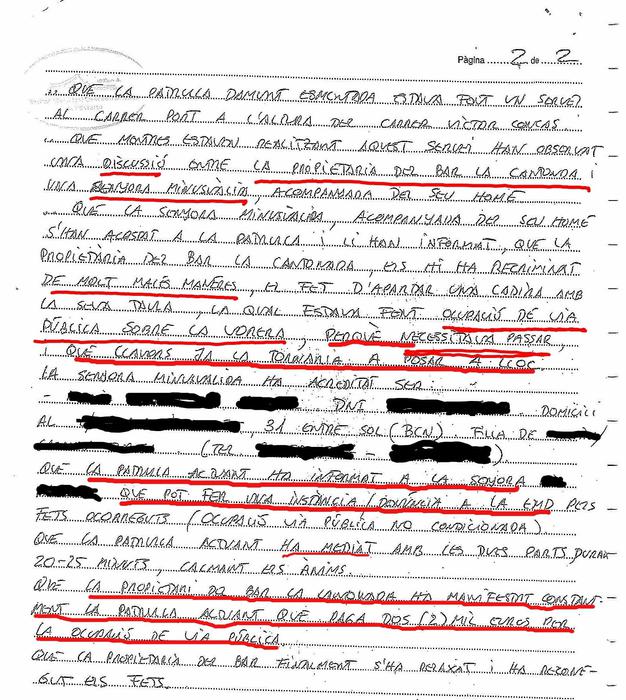 Pàgina 2 de 2
.. QUE LA PATRULLA DAMUNT ESMENTADA ESTAVA FENT UN SERVEI
AL CARRER PORT A L'ALÇADA DEL CARRER VICTOR CONCAS.
.. QUE MENTRES ESTAVEN REALITZANT AQUEST SERVEI HAN OBSERVAT
UNA DISCUSSIÓ ENTRE LA PROPIETARIA DEL BAR LA CANTONADA I
UNA SENYORA MINUSVÀLIDA, ACOMPANYADA DEL SEU HOME
.. QUE LA SENYORA MINUSVÀLIDA, ACOMPANYADA DEL SEU HOME
S'HAN ACOSTAT A LA PATRULLA I LI HAN INFORMAT, QUE LA
PROPIETÀRIA DEL BAR LA CANTONADA, ELS HI HA RECRIMINAT
DE MOLT MALES MANERES, EL FET D'APARTAR UNA CADIRA AMB
LA SEVA TAULA, LA QUAL ESTAVA FENT OCUPACIÓ DE VIA
PÚBLICA SOBRE LA VORERA, PERQUÈ NECESSITAVA PASSAR,
I QUE LLAVORS JA LA TORNARIA A POSAR A LLOC.
LA SENYORA MINUSVALIDA HA ACREDITAT SER:
- DNI . DOMICILI
AL , 31 ENTRE SOL (BCN) FILLA DE /
(TEL. - ).
QUE LA PATRULLA ACTUANT HA INFORMAT A LA SENYORA
QUE POT FER UNA INSTÀNCIA/DENÚNCIA A LA PELS
FETS OCORREGUTS (OCUPACIÓ VIA PÚBLICA NO CONDICIONADA)
QUE LA PATRULLA ACTUANT HA MEDIAT AMB LES DUES PARTS, DURANT
20-25 MINUTS, CALMANT ELS ÀNIMS.
QUE LA PROPIETARI DEL BAR LA CANTONADA HA MANIFESTAT CONSTANT-
MENT LA PATRULLA ACTUANT QUE PAGA DOS (2) MIL EUROS PER
LA OCUPACIÓ DE VIA PÚBLICA.
QUE LA PROPIETARIA DEL BAR FINALMENT S'HA RELAXAT I HA RECONE-
GUT ELS FETS.